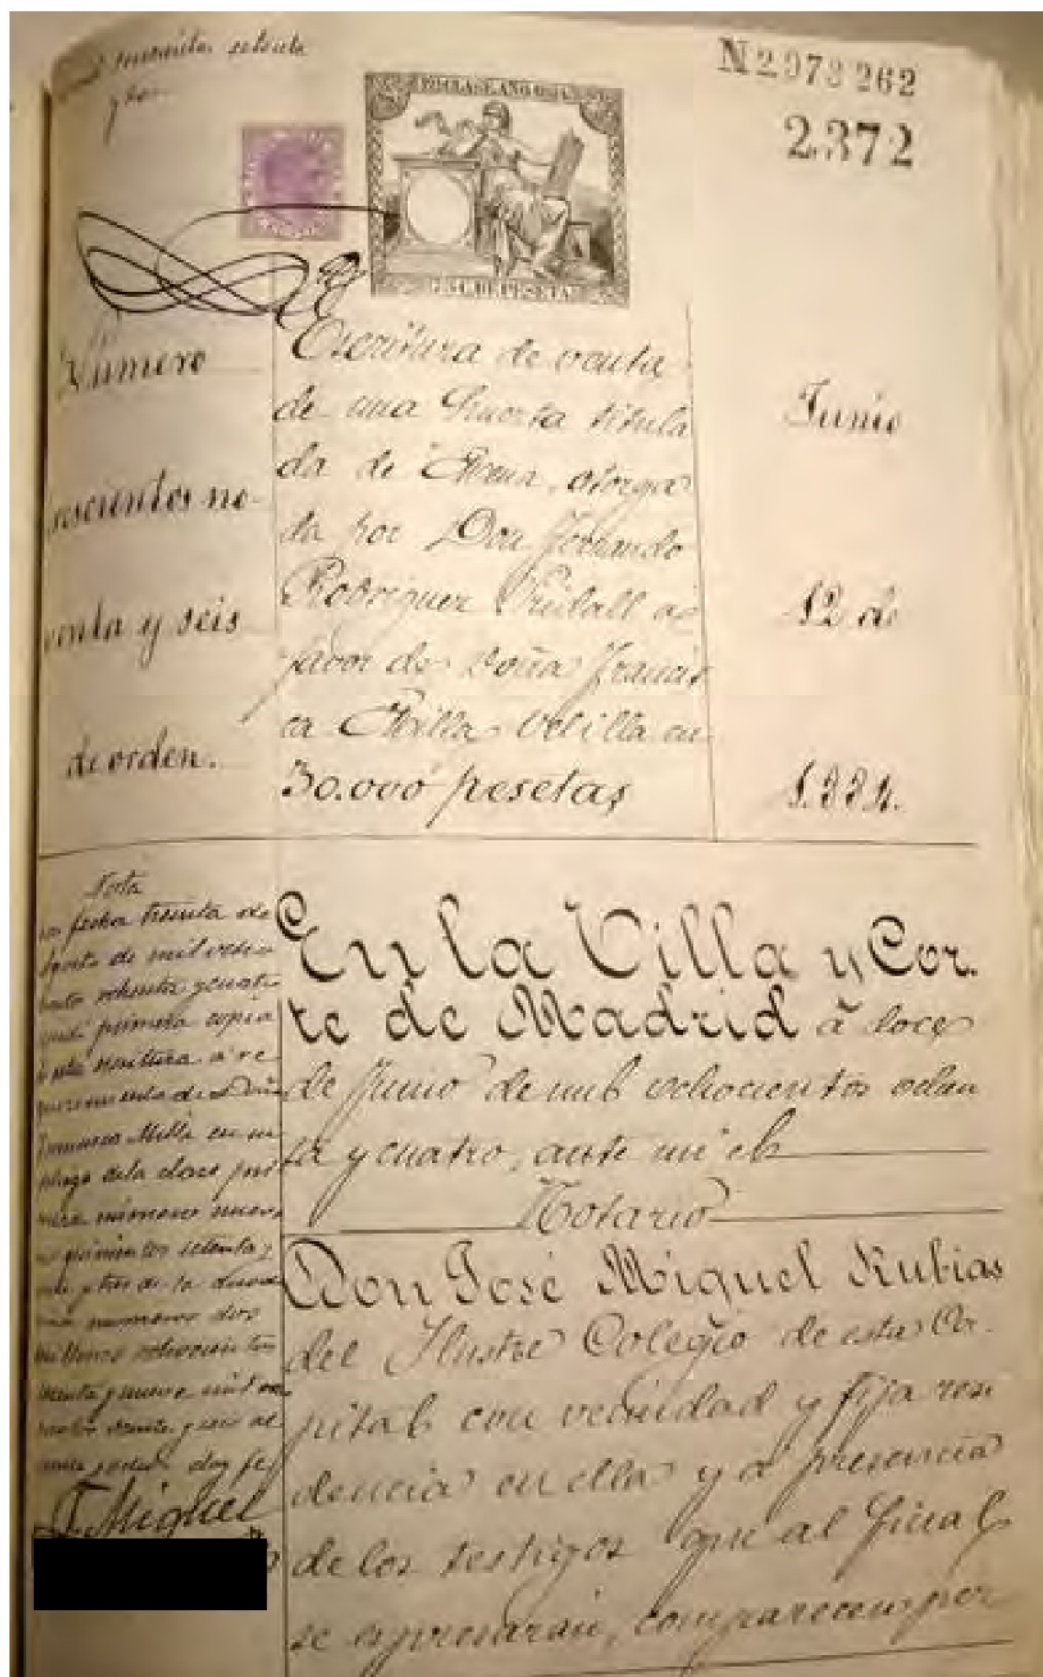 mil novecientos setenta
y tres
N2973262
2372
Número
trescientos no-
venta y seis
de orden.
Escritura de venta
de una Huerta titula
da de Mena, otorga
da por Don Fernando
Rodriguez Pridall a
favor de Doña Francis
ca Milla Velilla en
30.000 pesetas
Junio
12 de
1.884.
Nota
fecha treinta de
Agosto de mil ocho
cientos ochenta y cuatro
primera copia
de esta escritura a re
querimiento de Doña
Francisca Milla en un
pliego de la clase pri
mera número nueve
mil quinientos setenta y
y tres de la duode
cima numero dos
millones ochocientos
y nueve mil
al
doy fe
J. Miguel
En la Villa y Cor.
te de Madrid á doce
de Junio de mil ochocientos ochen
ta y cuatro, ante mi el
Notario
Don José Miguel Rubias
del Ilustre Colegio de esta Ca-
pital con vecindad y fija resi
dencia en ella y a presencia
de los testigos que al final
se espresarán, comparecen por